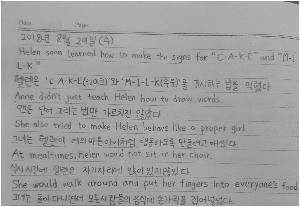 Date
2018년 8월 29일 (수)
Helen soon learned how to make the signs for "C-A-K-E" and "M-I
L-K"
헬렌은 'C-A-K-E(케이크)'와 'M-I-L-K(우유)'를 표시하는 법을 익혔다
Anne didn't just teach Helen how to draw words.
앤은 단어 그리는 법만 가르치진 않았다
She also tried to make Helen behave like a proper girl
그녀는 헬렌이 여자아이처럼 행동하도록 만들려고 애썼다
At mealtimes, Helen would not sit in her chair.
식사시간에 헬렌은 자기자리에 앉아 있지 않았다
She would walk around and put her fingers into everyone's food
그녀는 돌아다니면서 모든 사람들의 음식에 손가락을 집어넣었다